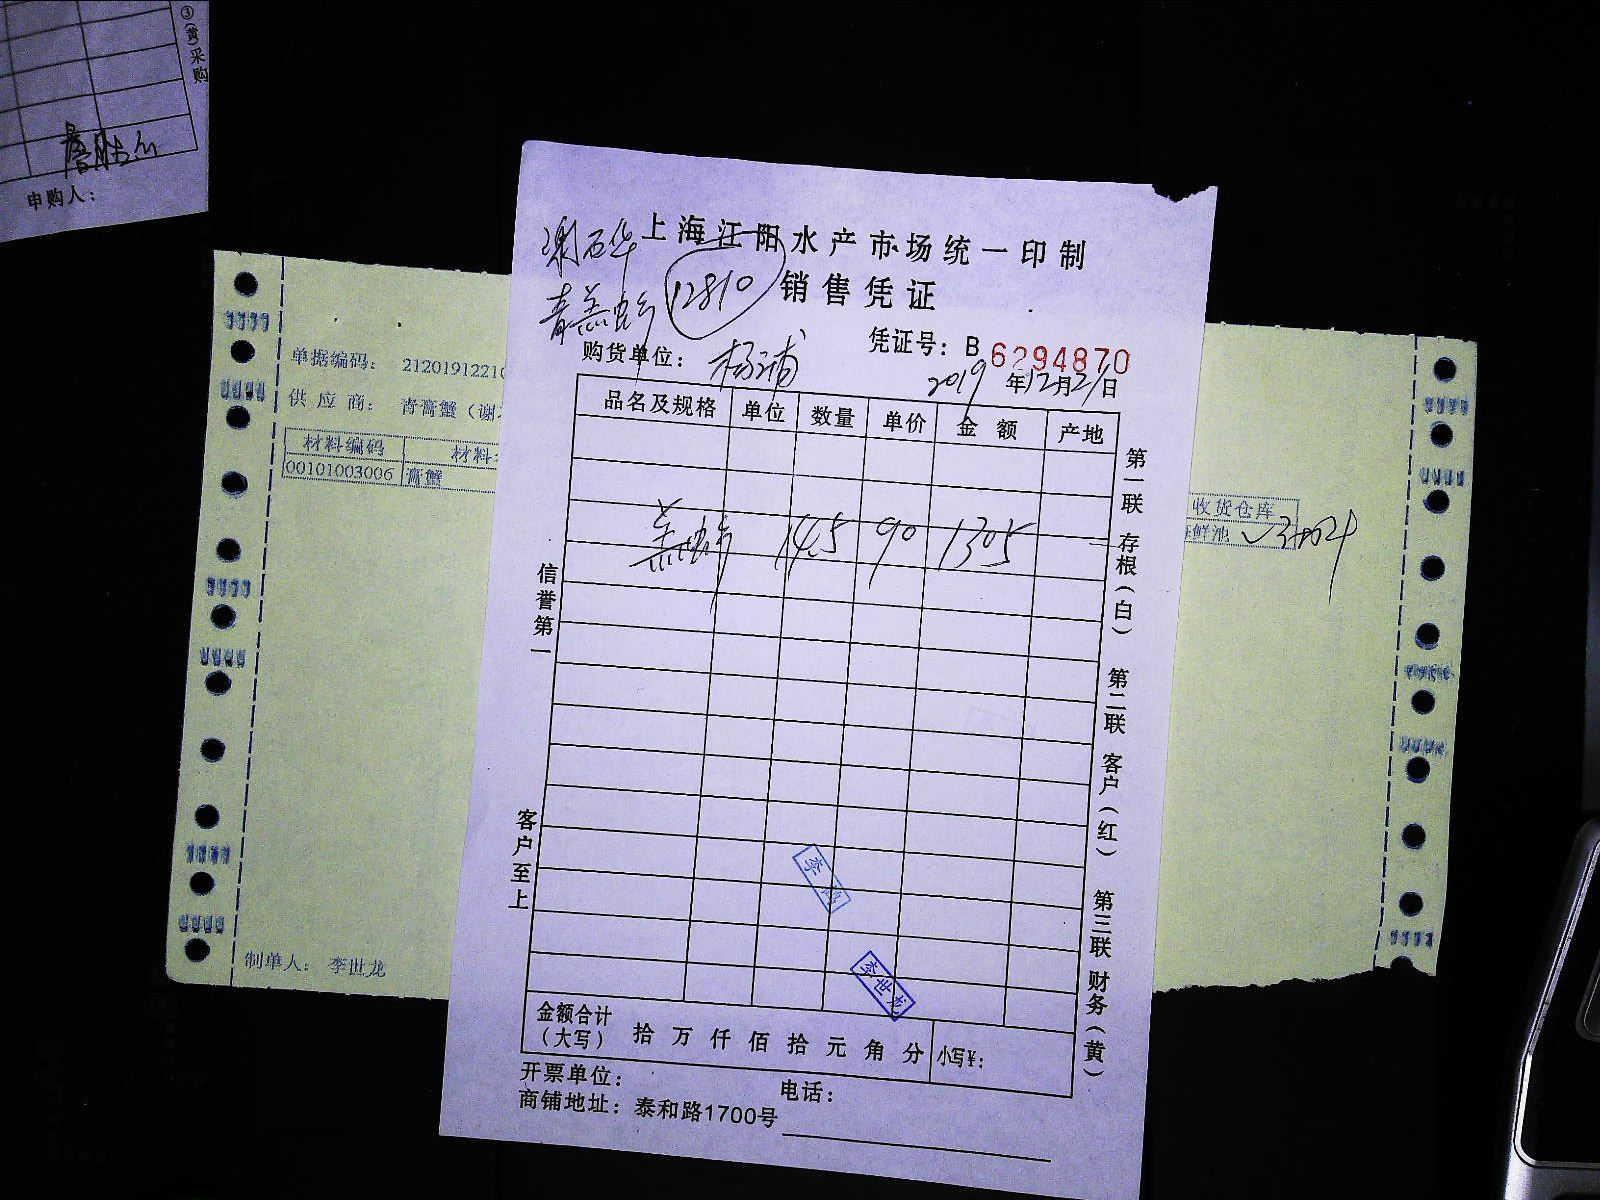 ③(黄)采购
申购人：
谢石华
上海江阳水产市场统一印制
12810
销售凭证
凭证号：B 6294870
购货单位：杨浦
2019年12月21日
品名及规格 单位 数量 单价 金额 产地
14.5 90 1305
信誉第一
客户至上
第一联 存根（白） 第二联 客户（红） 第三联 财务（黄）
李世龙
金额合计（大写） 拾 万 仟 佰 拾 元 角 分 小写¥：
开票单位：
电话：
商铺地址：泰和路1700号
单据编码： 2120191221
供应商： 青膏蟹（谢
材料编码 材料
00101003006 膏蟹
收货仓库
鲜池
制单人： 李世龙